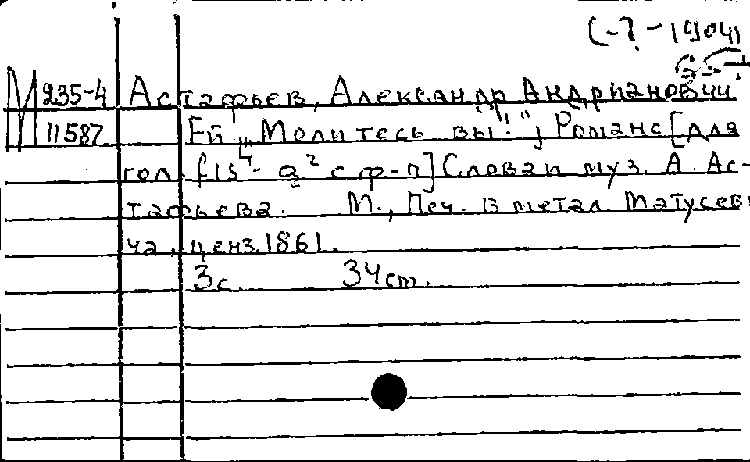 (-?-1904)
М 235-4 Астафьев, Александр Андрианович
11587 Ей „Молитесь вы!", Романс [для
гол. с ф-п] Слова и муз. А. Ас-
тафьева. М., Печ. в метал. Матусеви
ча, ценз. 1861.
3с. 34см.